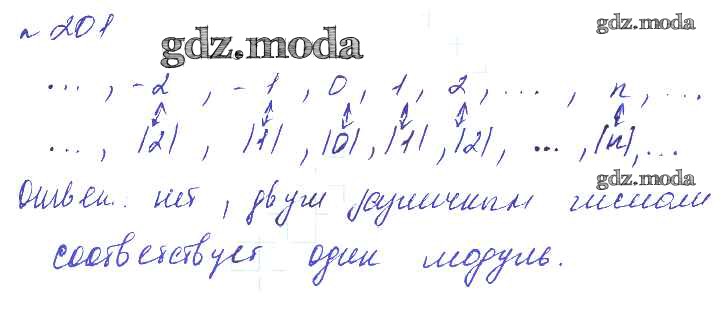 № 201
gdz.moda
gdz.moda
..., -2, -1, 0, 1, 2, ..., n, ...
..., |2|, |1|, |0|, |1|, |2|, ..., |n|, ...
gdz.moda
Ответ: нет, двум различным числам
соответствует один модуль.